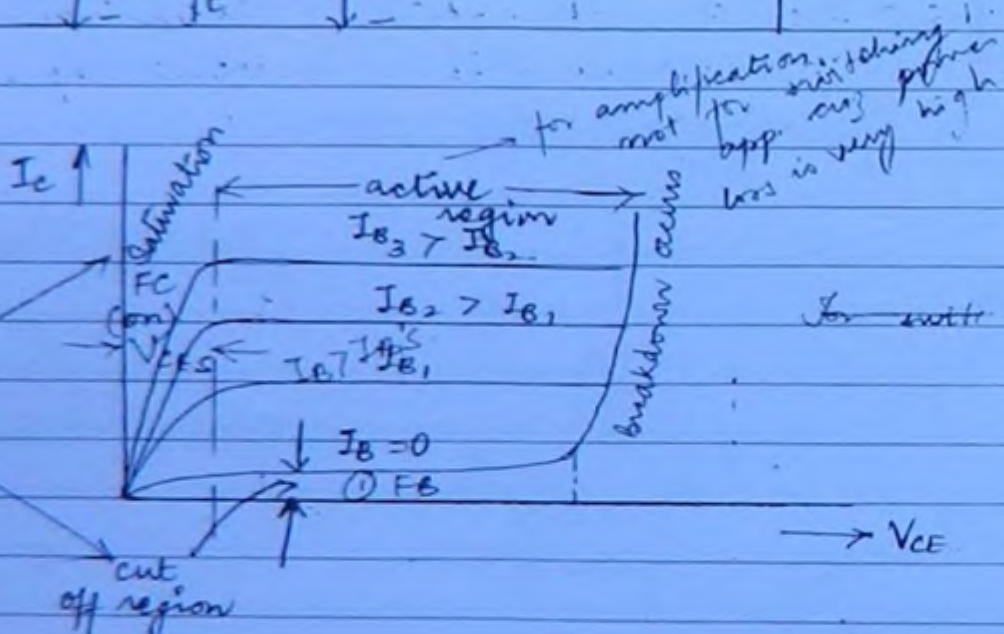 for amplification,
not for switching
app. cuz power
loss is very high
Ic
Saturation
active
region
FC
(on)
VCES
IB3 > IB2
IB2 > IB1
IB = 0
① FB
breakdown occurs
VCE
cut
off region